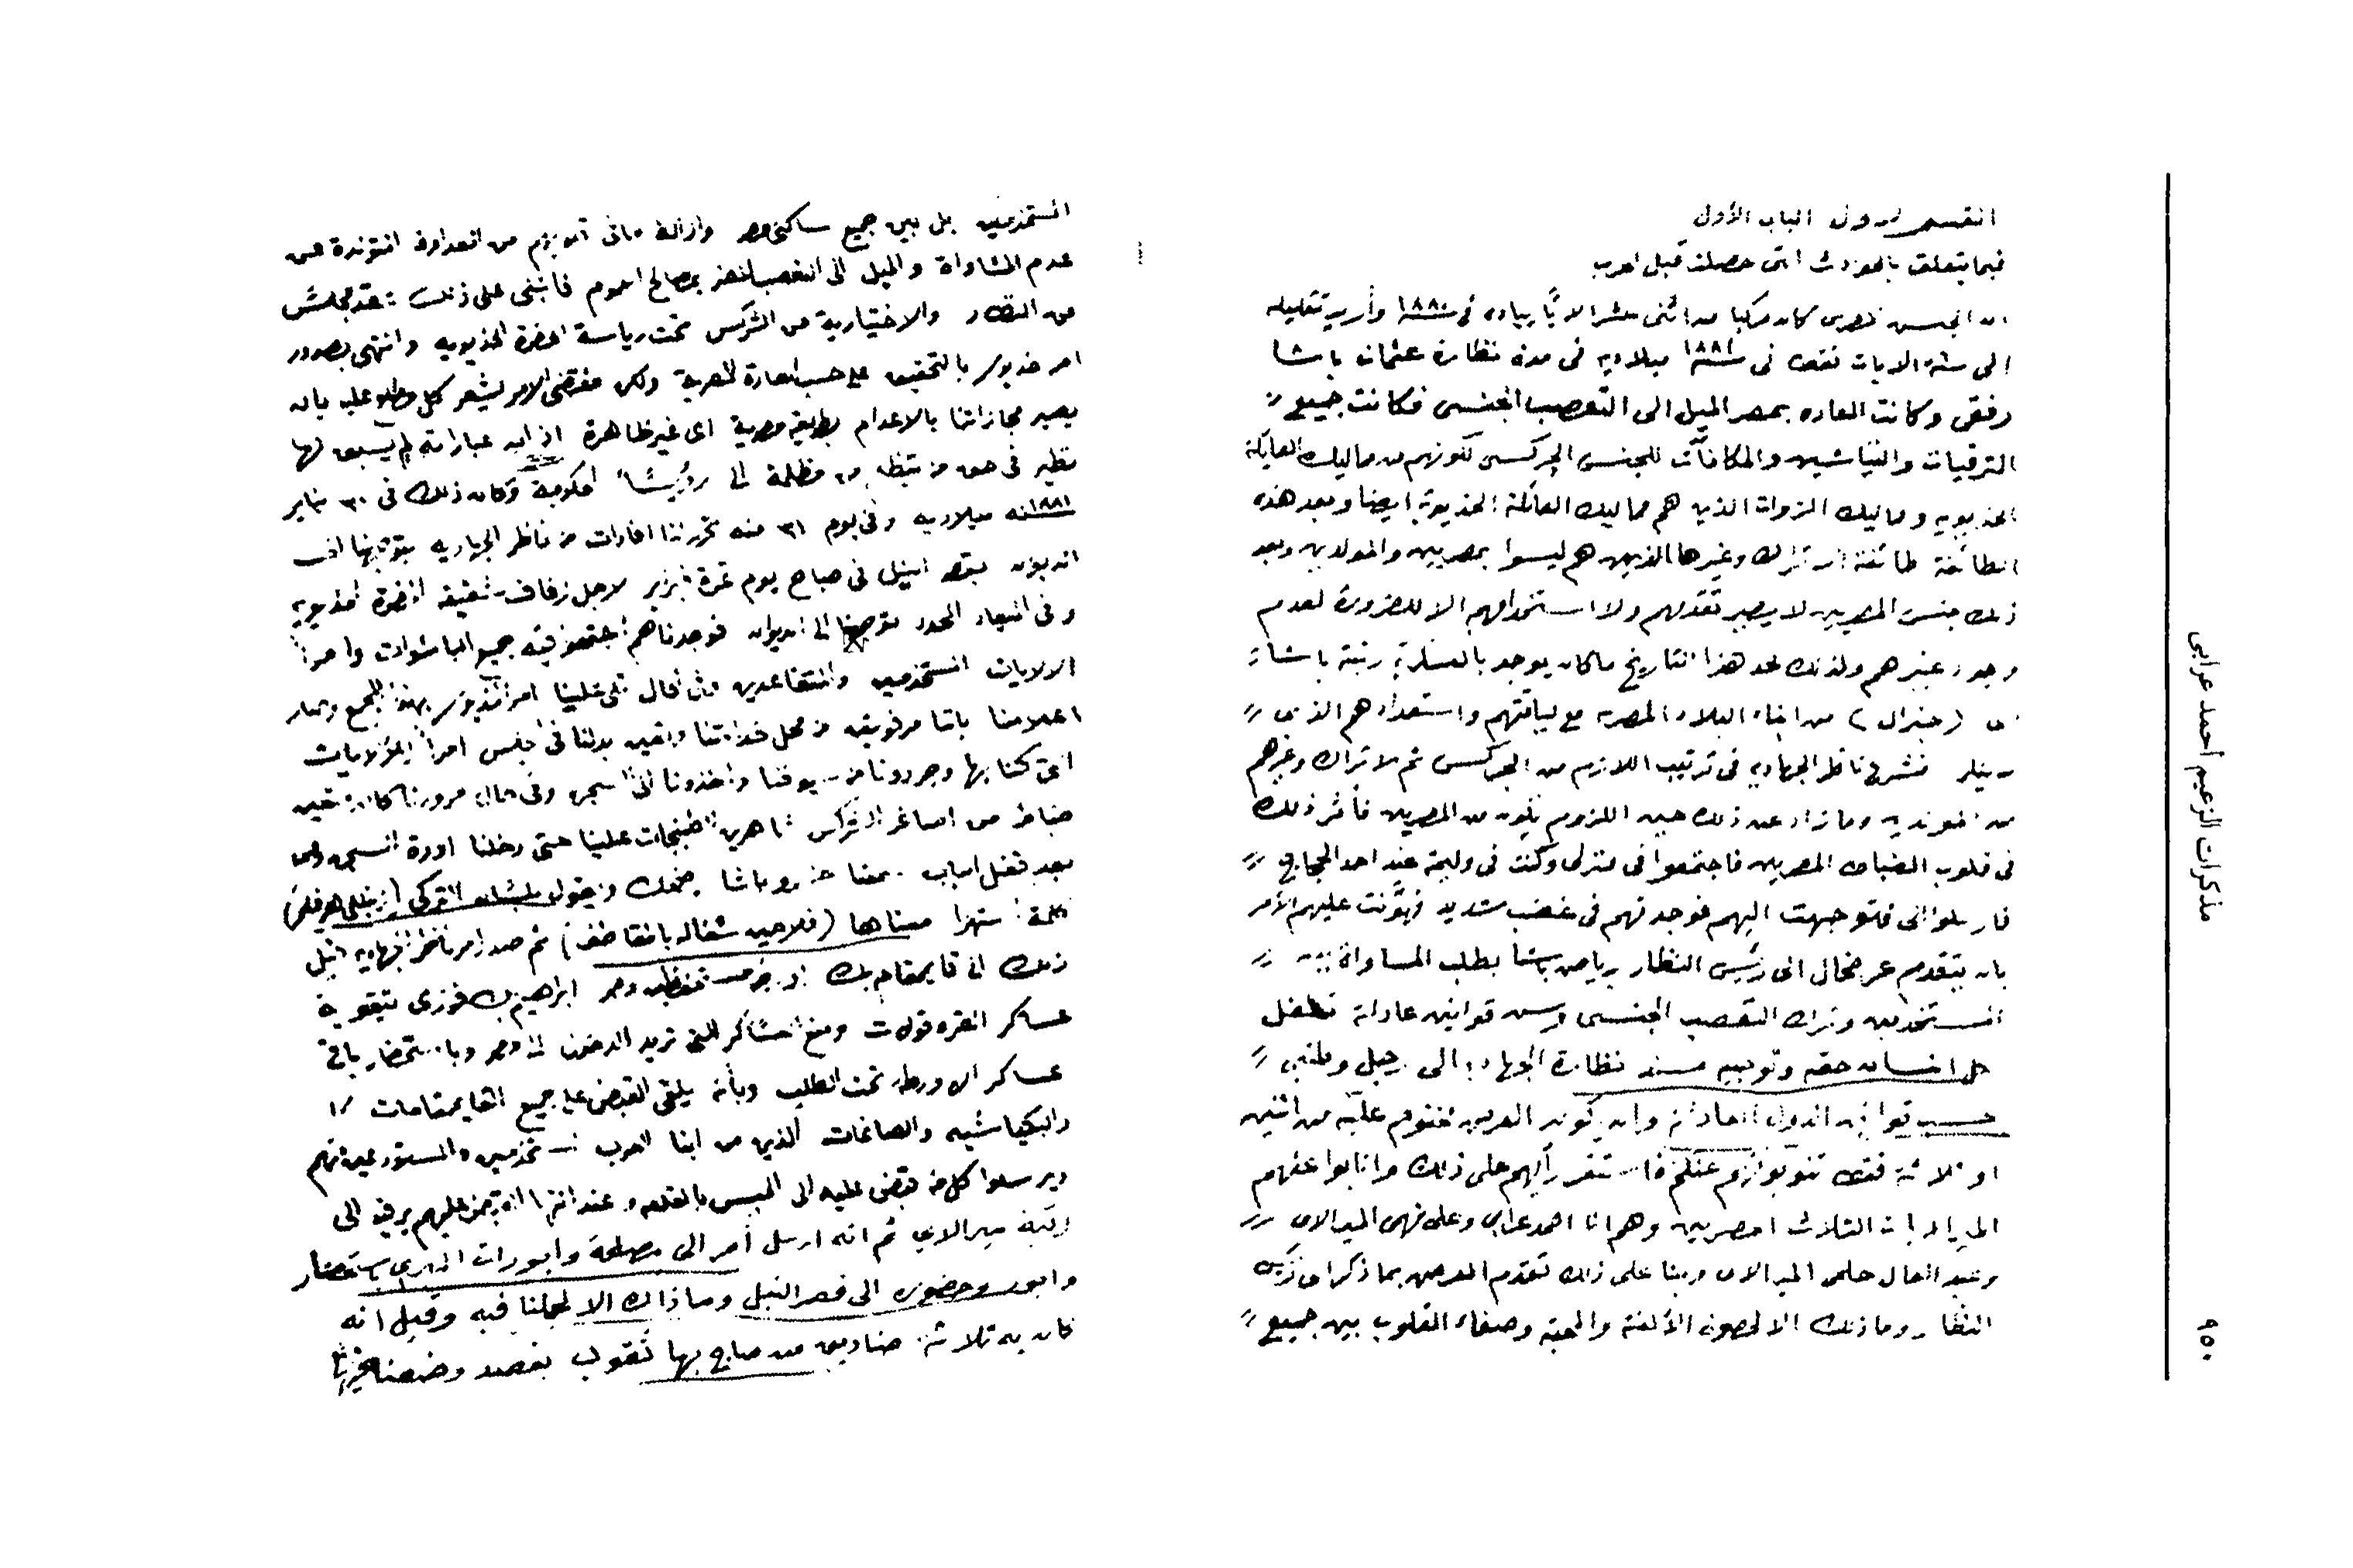 القسم الاول الباب الأول
فيما يتعلق بالحوادث التى حصلت قبل الحرب
ان الجيش المصرى كان مركبا من اثنى عشر الايًا بياده فى سنة ١٨٨٠ وأريد تقليله
الى ستة الايات فقط فى سنة ١٨٨١ ميلاديه فى مدة نظارة عثمان باشا
رفقى وكانت العاده بمصر الميل الى التعصب الجنسى فكانت جميع
الترقيات والنياشين والمكافآت للجنس الجركسى لكونهم من مماليك العايلة
الخديويه ومماليك الذوات الذين هم مماليك العائلة الخديوية ايضا وبعد هذه
الطائفة طائفة الاتراك وغيرها الذين هم ليسوا بمصريين والمولدين وبعد
ذلك جنس المصريين لا يصير تقدمهم ولا استخدامهم الا للضرورة لعدم
وجود غيرهم ولذلك لحد هذا التاريخ ما كان يوجد بالعسكرية رتبة باشا
(جنرال) من ابناء البلاد المصريه مع لياقتهم واستعدادهم الذى
فشرع ناظر الجهاديه فى ترتيب اللازم من الجركس ثم الاتراك وغيرهم
من وما زاد عن ذلك حين اللزوم يكون من المصريين فأثر ذلك
فى قلوب الضباط المصريين فاجتمعوا فى منزلى وكنت فى وليمة عند احد الحجاج
فارسلوا الى فتوجهت اليهم فوجدتهم فى غضب شديد فهوّنت عليهم الأمر
بان يتقدم عرضحال الى رئيس النظار رياض باشا بطلب المساواة بين
المستخدمين وترك التعصب الجنسى وسن قوانين عادلة تكفل
لكل انسان حقه وتوجيه مسند نظارة الجهاديه الى رجل وطنى
حسب قوانين الدول العادلة وان يكون العرض مختوم عليه من اثنين
او ثلاثة فقط تنوبوازم عنكم فاستقر رأيهم على ذلك وانابوا عنهم
الميرالايات الثلاث المصريين وهم انا احمد عرابى وعلى فهمى الميرالاى
وعبد العال حلمى الميرالاى وبنا على ذلك تقدم العرض بما ذكر الى رئيس
النظار وما ذلك الا لحصول الألفة والمحبة وصفاء القلوب بين جميع
المستخدمين بل بين جميع ساكنى مصر وازالة ما فى قلوبهم من العداوة المتولدة من
عدم المساواة والميل الى التعصب المضر بمصالح العموم فانبنى على ذلك عقد مجلس
من النظار والاختيارية من الشركس تحت رياسة الحضرة الخديويه وانتهى بصدور
امر خديوى بالتحقيق على حسب العادة المصرية ولكن مقتضى الامر ليشعر كل مطلع عليه بانه
يصير مجازاتنا بالاعدام بطريقة مصرية اى غير ظاهرة اذ ان عباراته لم يسبق لها
نظير فى حق من يتظلم من مظلمة الى رؤسا الحكومة وكان ذلك فى ٣٠ يناير
سنة ١٨٨١ ميلاديه وفى يوم ٣١ منه تحرر لنا افادات من ناظر الجهاديه بتوجهنا الى
الديوان بقصر النيل فى صباح يوم غرة فبراير لاجل زفاف شقيقة الحضرة الخديوية
وفى الميعاد المحدد توجهنا الى الديوان فوجدناهم اجتمعوا فيه جميع الباشوات وامرا
الالايات المستخدمين والمتقاعدين وفى الحال تلى علينا امر الخديوى بهذا المجمع وصار
اعلامنا باننا مرفوتين من محل خدامتنا وتعين بدلنا فى المجلس امرا الميرالايات
التى كنا بها وجردونا من سيوفنا واخذونا الى السجن وفى حال مرورنا كانت تحيد
ضباط من اصاغر الشركس شاهرين الطبنجات علينا حتى دخلنا اودة السجن ومن
بعد قفل الباب سمعنا خسرو باشا يضحك ويقول بلسان التركى
كلمة استهزا معناها (فلاحين شغاله بالمقاطف) ثم صدر امر ناظر الجهاديه قبل
ذلك الى قايمقام بك اورخرمت محافظ مصر ابراهيم بك فوزى بتقوية
عساكر القره قولات ومنع العساكر التى تريد الدخول الى مصر وباستحضار باقى
عساكر الاورطه تحت الطلب وبأنه يلقى القبض على جميع القايمقامات
والبكباشيه والصاغات الذين من ابنا العرب المستخدمين والمستودعين منهم
ويرسلوا كل من قبض عليه الى الحبس بالقلعه وعند انتها القبض عليهم يرقيه الى
رتبة ميرالاى ثم انه ارسل أمر الى مصلحة وابورات البحرى باستحضار
وابور وحضوره الى قصر النيل وما ذاك الا لجعلنا فيه وقيل انه
كان به ثلاثة صناديق من صاج بها ثقوب بقصد وضعنا
مذكرات الزعيم أحمد عرابى
٩٥٠